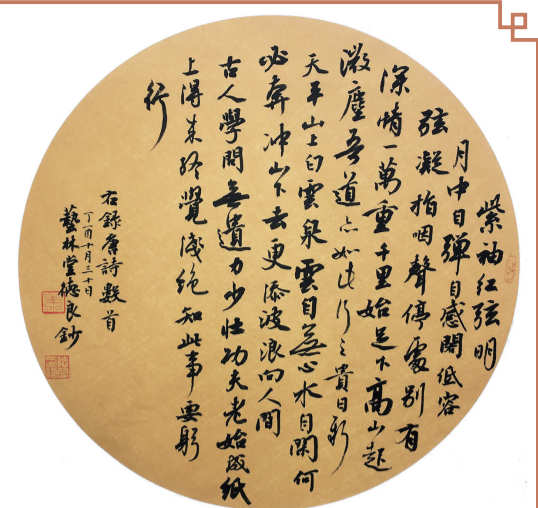 紫袖红弦明
月中自弹自感闇低容
弦凝指咽聲停處别有
深情一萬重千里始足下高山起
微塵吾道亦如此行之貴日新
天平山上白雲泉雲自無心水自閑何
必奔冲山下去更添波浪向人間
古人學問無遺力少壮功夫老始成紙
上得来终覺淺絶知此事要躬
行
右錄唐詩数首
丁酉十月三十日
藝林堂德良鈔